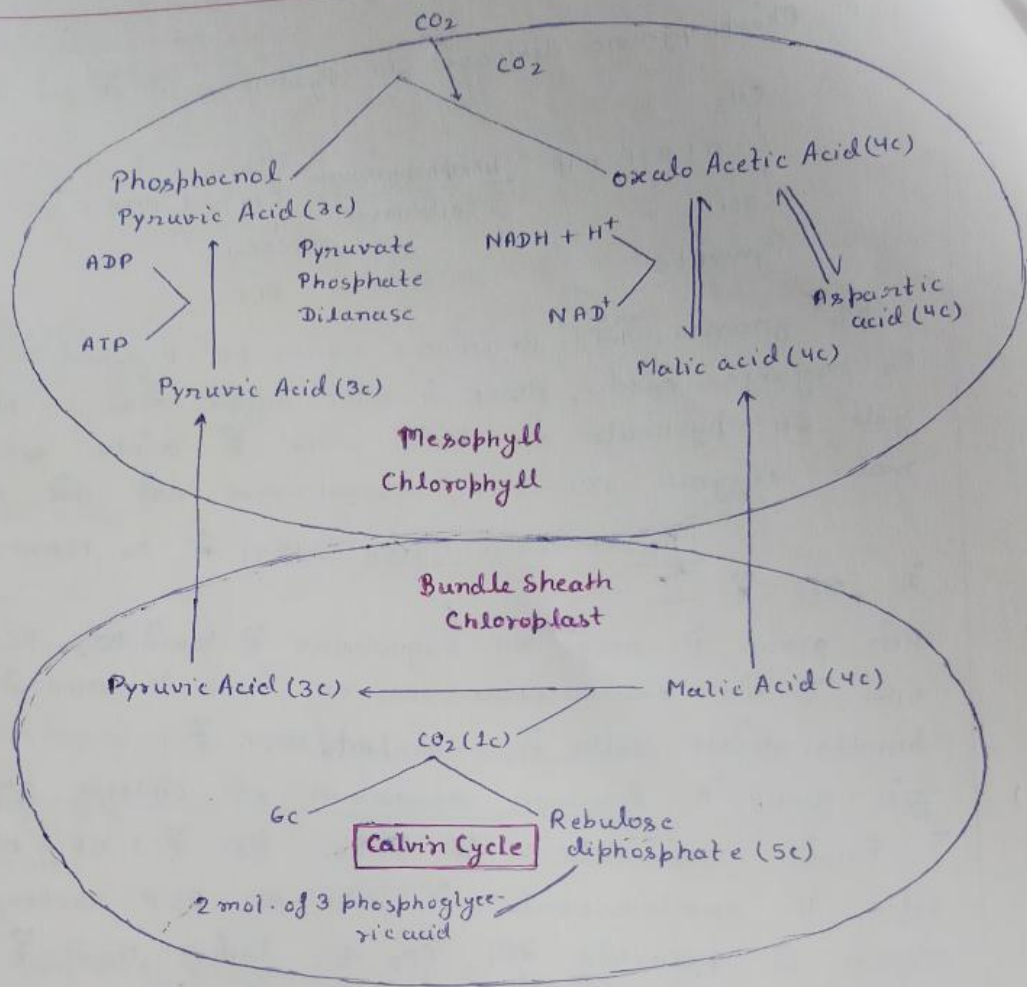 CO2
CO2
Phosphoenol
Pyruvic Acid (3c)
Oxalo Acetic Acid (4c)
ADP
ATP
Pyruvate
Phosphate
Dilanase
NADH + H+
NAD+
Aspartic
acid (4c)
Malic acid (4c)
Pyruvic Acid (3c)
Mesophyll
Chlorophyll
Bundle Sheath
Chloroplast
Pyruvic Acid (3c)
Malic Acid (4c)
CO2 (1c)
6c
Rebulose
diphosphate (5c)
Calvin Cycle
2 mol. of 3 phosphoglyce-
ric acid